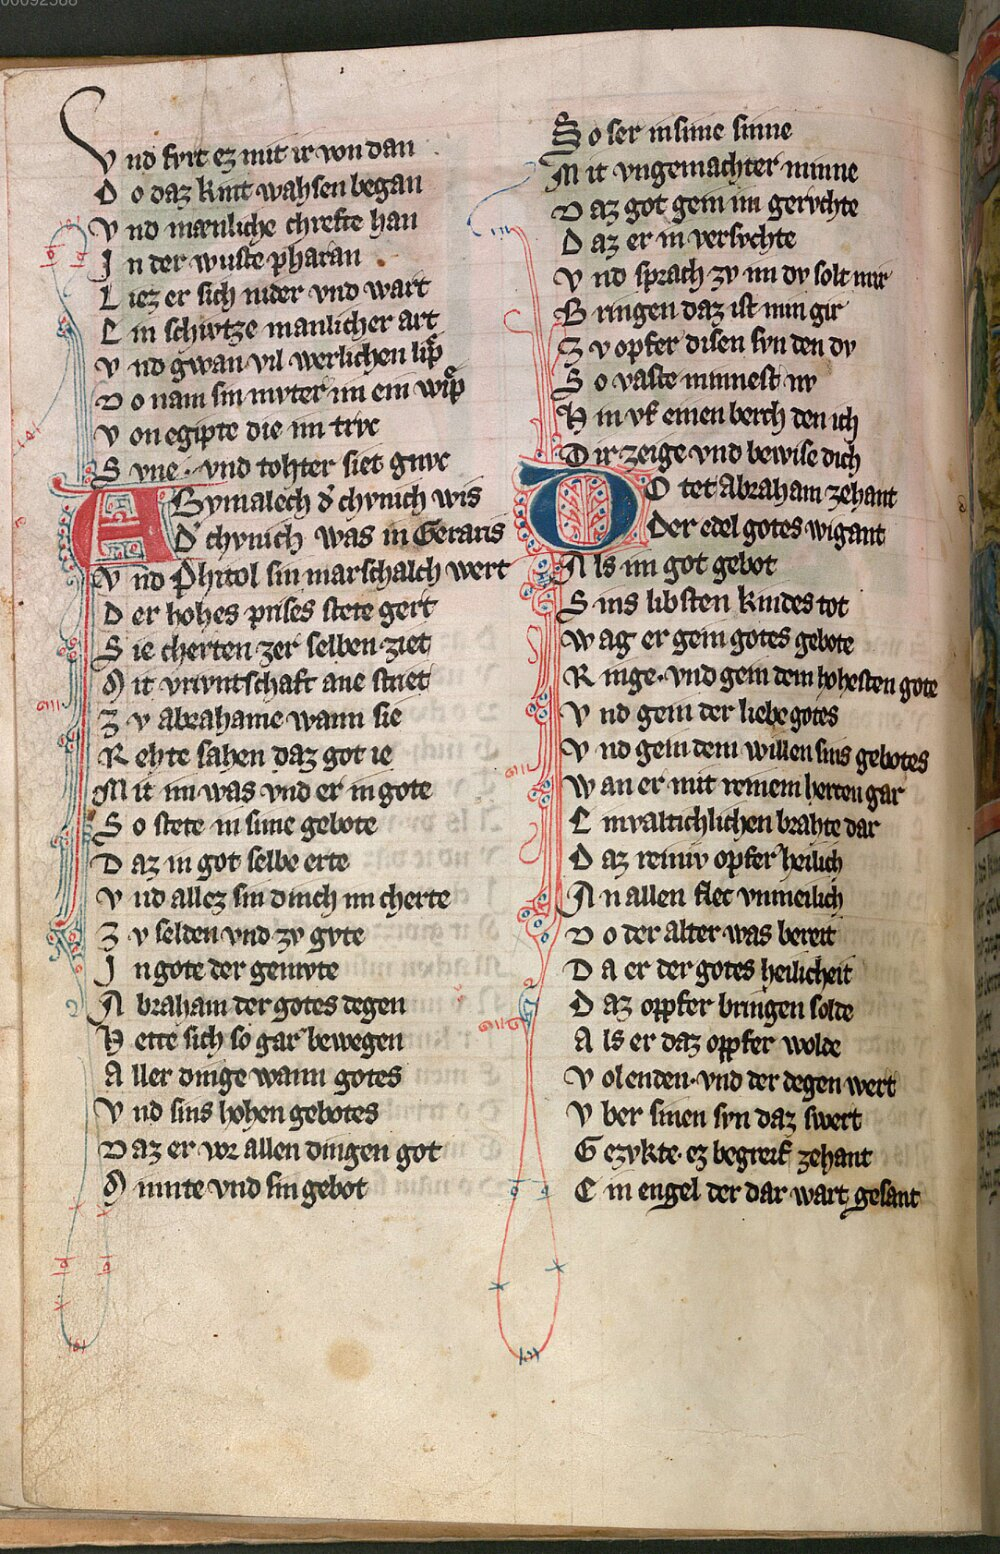 00092588
V nd fvrt ez mit ir von dan
D o daz kint wahsen began
V nd mænliche chrefte han
I n der wuste pharan
L iez er sich nider vnd wart
E in schvtze manlicher art
V nd gwan vil werlichen lip
D o nam sin mvter im ein wip
V on egipte die im trvc
S vne · vnd tohter siet gnvc
A Bymalech d᾽ chvnich wis
D᾽ chvnich was in Geraris
V nd Phicol sin marschalch wert
D er hohes prises stete gert
S ie cherten zer selben ziet
M it vrivntschaft ane striet
Z v abrahame wann sie
R ehte sahen daz got ie
M it im was vnd er in gote
S o stete in sime gebote
D az in got selbe erte
V nd allez sin dinch im cherte
Z v selden vnd zv gvte
I n gote der gemvte
A braham der gotes degen
H ette sich so gar bewegen
A ller dinge wann gotes
V nd sins hohen gebotes
D az er vor allen dingen got
M inte vnd sin gebot
S o ser in sime sinne
M it vngemachter minne
D az got gein im gervchte
D az er in versvchte
V nd sprach zv im dv solt mir
B ringen daz ist min gir
Z v opfer disen svn den dv
S o vaste minnest nv
H in vf einen berch den ich
D ir zeige vnd bewise dich
D O tet Abraham zehant
Der edel gotes wigant
A ls im got gebot
S ins libsten kindes tot
W ag er gein gotes gebote
R inge · vnd gein dem hohesten gote
V nd gein der liebe gotes
V nd gein dem willen sins gebotes
W an er mit reinem herten gar
E invaltichlichen brahte dar
D az reniv opfer heilich
A n allen flec vnmeilich
D o der alter was bereit
D a er der gotes heilicheit
D az oppfer bringen solde
A ls er daz oppfer wolde
V olenden · vnd der degen wert
V ber sinen svn daz swert
G ezvkte · ez begreif zehant
E in engel der dar wart gesant